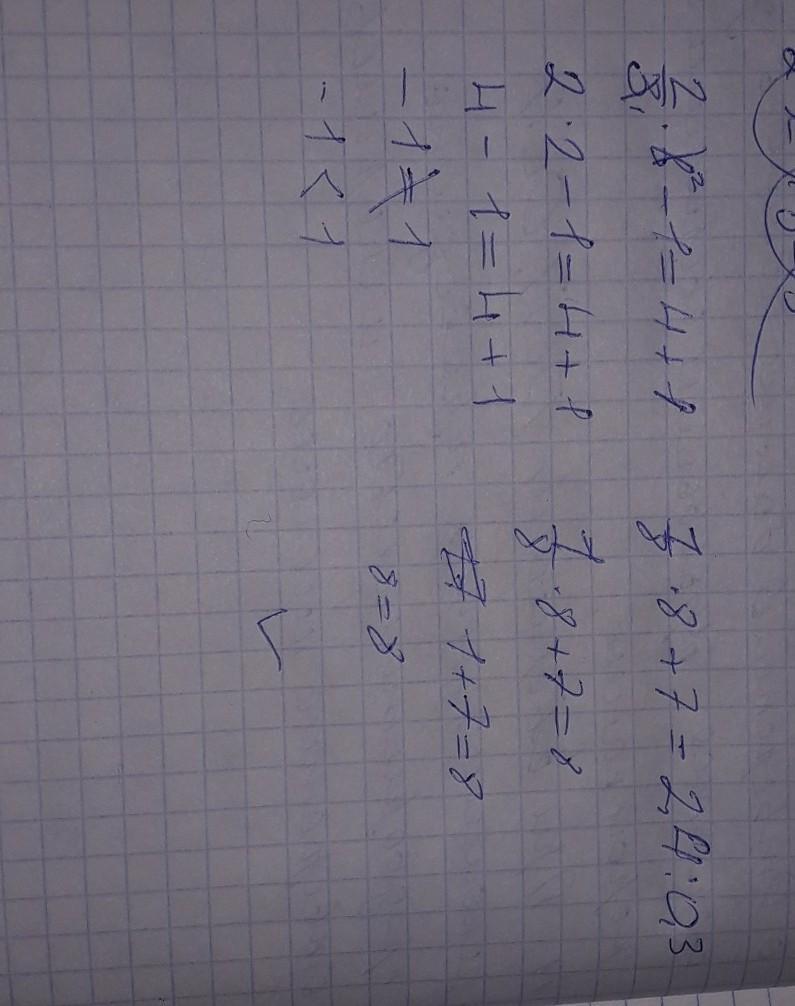 2/3 · 6² − 1 = 4 + 1
2 · 2 − 1 = 4 + 1
4 − 1 = 4 + 1
− 1 ≠ 1
− 1 < 1
1/8 · 8 + 7 = 2,4 : 0,3
1/8 · 8 + 7 = 8
1 + 7 = 8
8 = 8